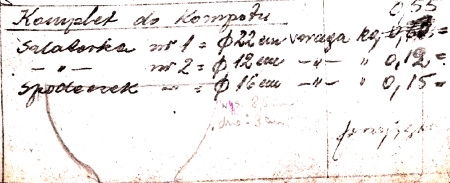 0,55
Komplet do kompotu
Salaterka nr 1 = ϕ 22 cm waga kg.
— „ — nr 2 = ϕ 12 cm — „ — „ 0,12 =
Spodeczek — „ = ϕ 16 cm — „ — „ 0,15 =